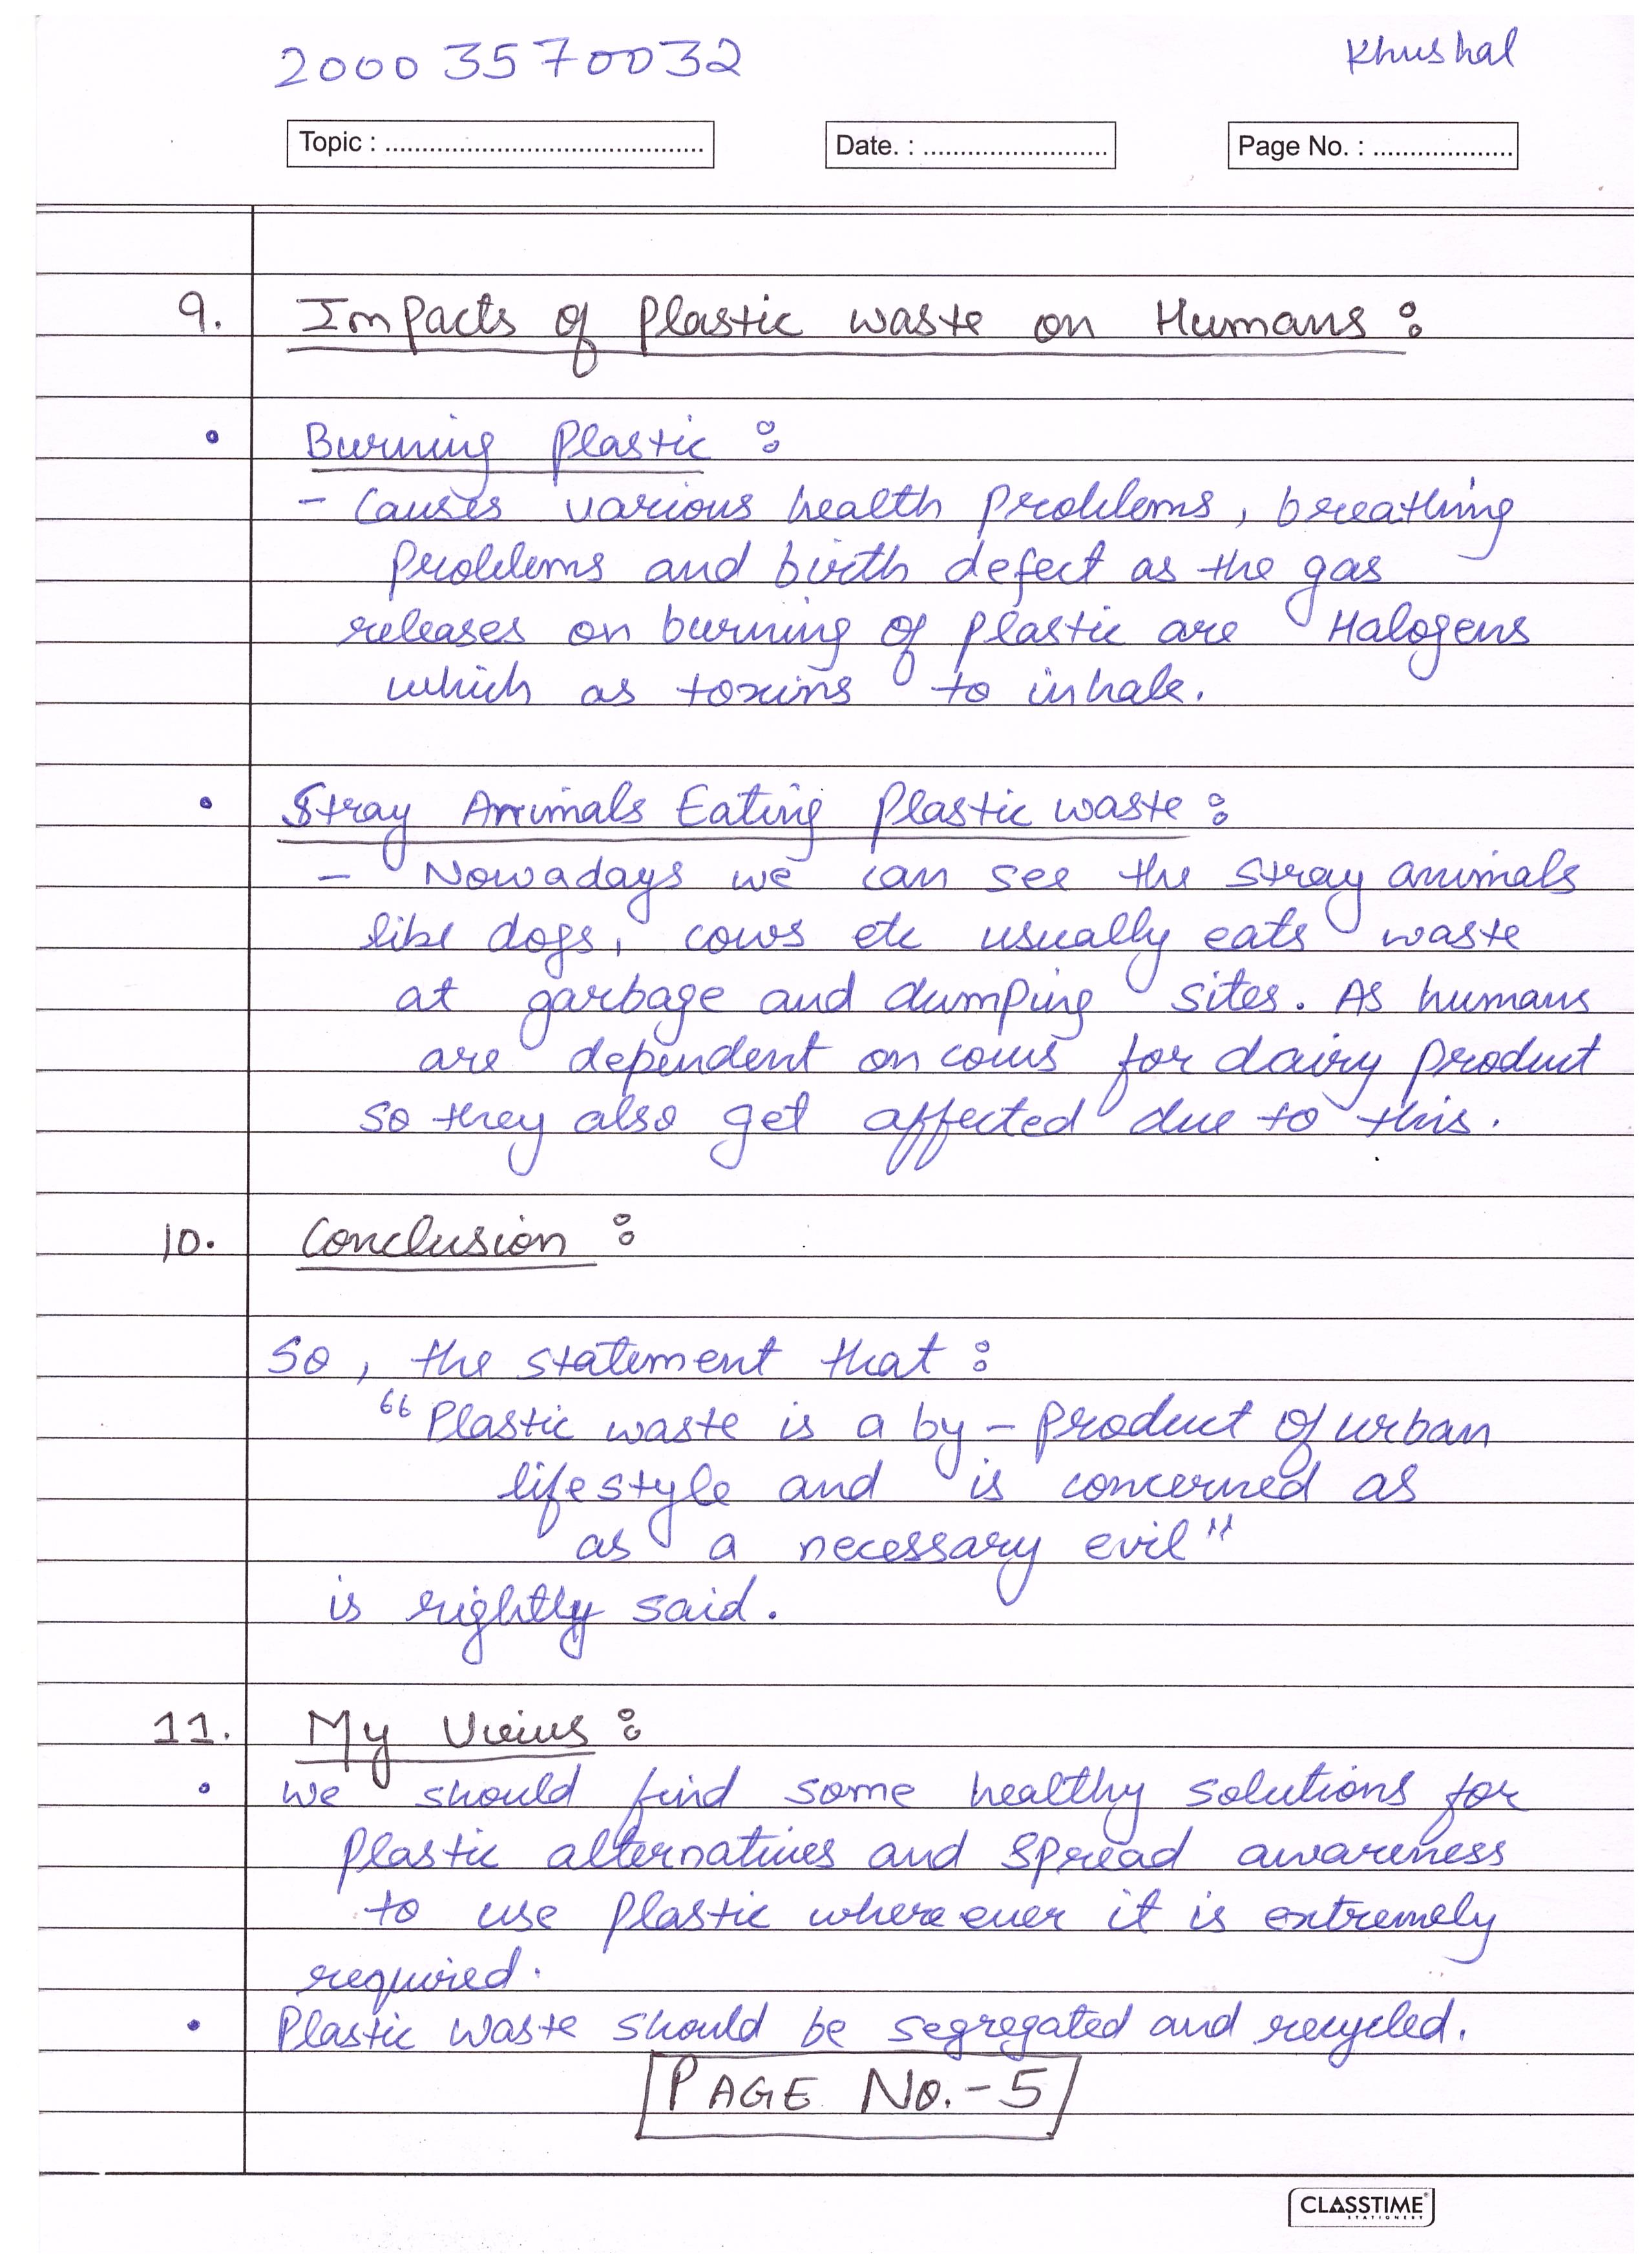 20003570032 Khushal
Topic : ........................................... Date. : ......................... Page No. : ...................
9. Impacts of Plastic waste on Humans :
• Burning Plastic :
- Causes various health problems, breathing
problems and birth defect as the gas
releases on burning of plastic are Halogens
which as toxins to inhale.
• Stray Animals Eating Plastic waste :
- Nowadays we can see the stray animals
like dogs, cows etc usually eats waste
at garbage and dumping sites. As humans
are dependent on cows for dairy product
so they also get affected due to this.
10. Conclusion :
So, the statement that :
"Plastic waste is a by-product of urban
lifestyle and is concerned as
as a necessary evil"
is rightly said.
11. My Views :
• We should find some healthy solutions for
plastic alternatives and spread awareness
to use plastic where ever it is extremely
required.
• Plastic waste should be segregated and recycled.
PAGE No.-5
CLASSTIME
STATIONERY